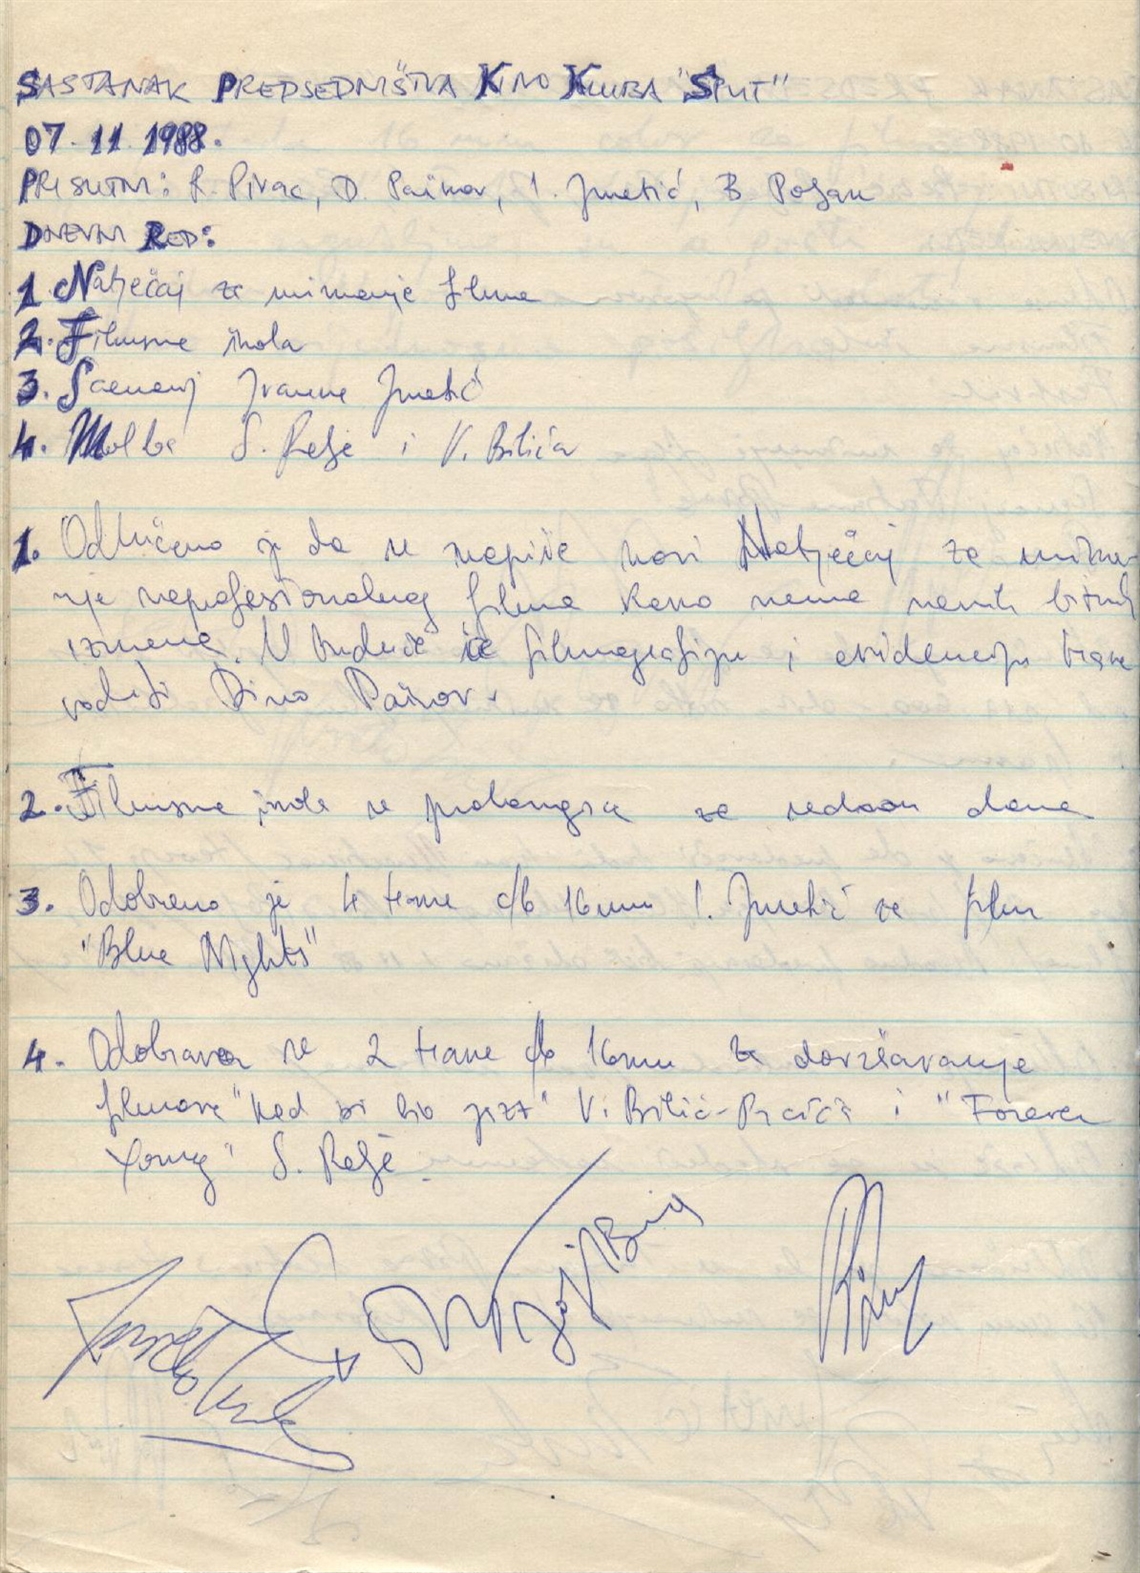 SASTANAK PREDSEDNIŠTVA KINO KLUBA "SPLIT"
07. 11. 1988.
PRISUTNI: R. Pivac, D. Pažnov, I. Jmetić, B. Poljan
DNEVNI RED:
1. Natječaj za snimanje filma
2. Filmske škola
3. Scenarij Ivanne Jmetić
4. Molba S. Relje i V. Bilića
1. Odlučeno je da se napiše novi Natječaj za snima-
nje neprofesionalnog filma kako nema nekih bitnih
izmena. U buduće će filmografiju i evidenciju trake
voditi Dino Pažnov.
2. Filmske škole se prolongira za sedam dana
3. Odobreno je 4 trake c/b 16mm I. Jmetić za film
"Blue Nights"
4. Odobrava se 2 trake c/b 16mm za dovršavanje
filmova "Kad bi bio jazz" V. Bilić- i "Forever
Young" S. Relje.